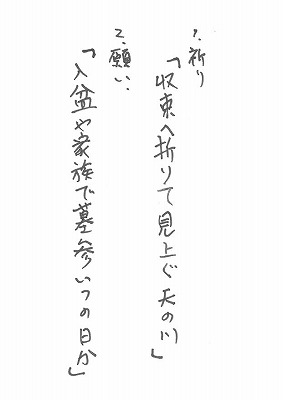 1.祈り
「収束へ祈りて見上ぐ天の川」
2.願い.
「入盆や家族で墓参いつの日か」